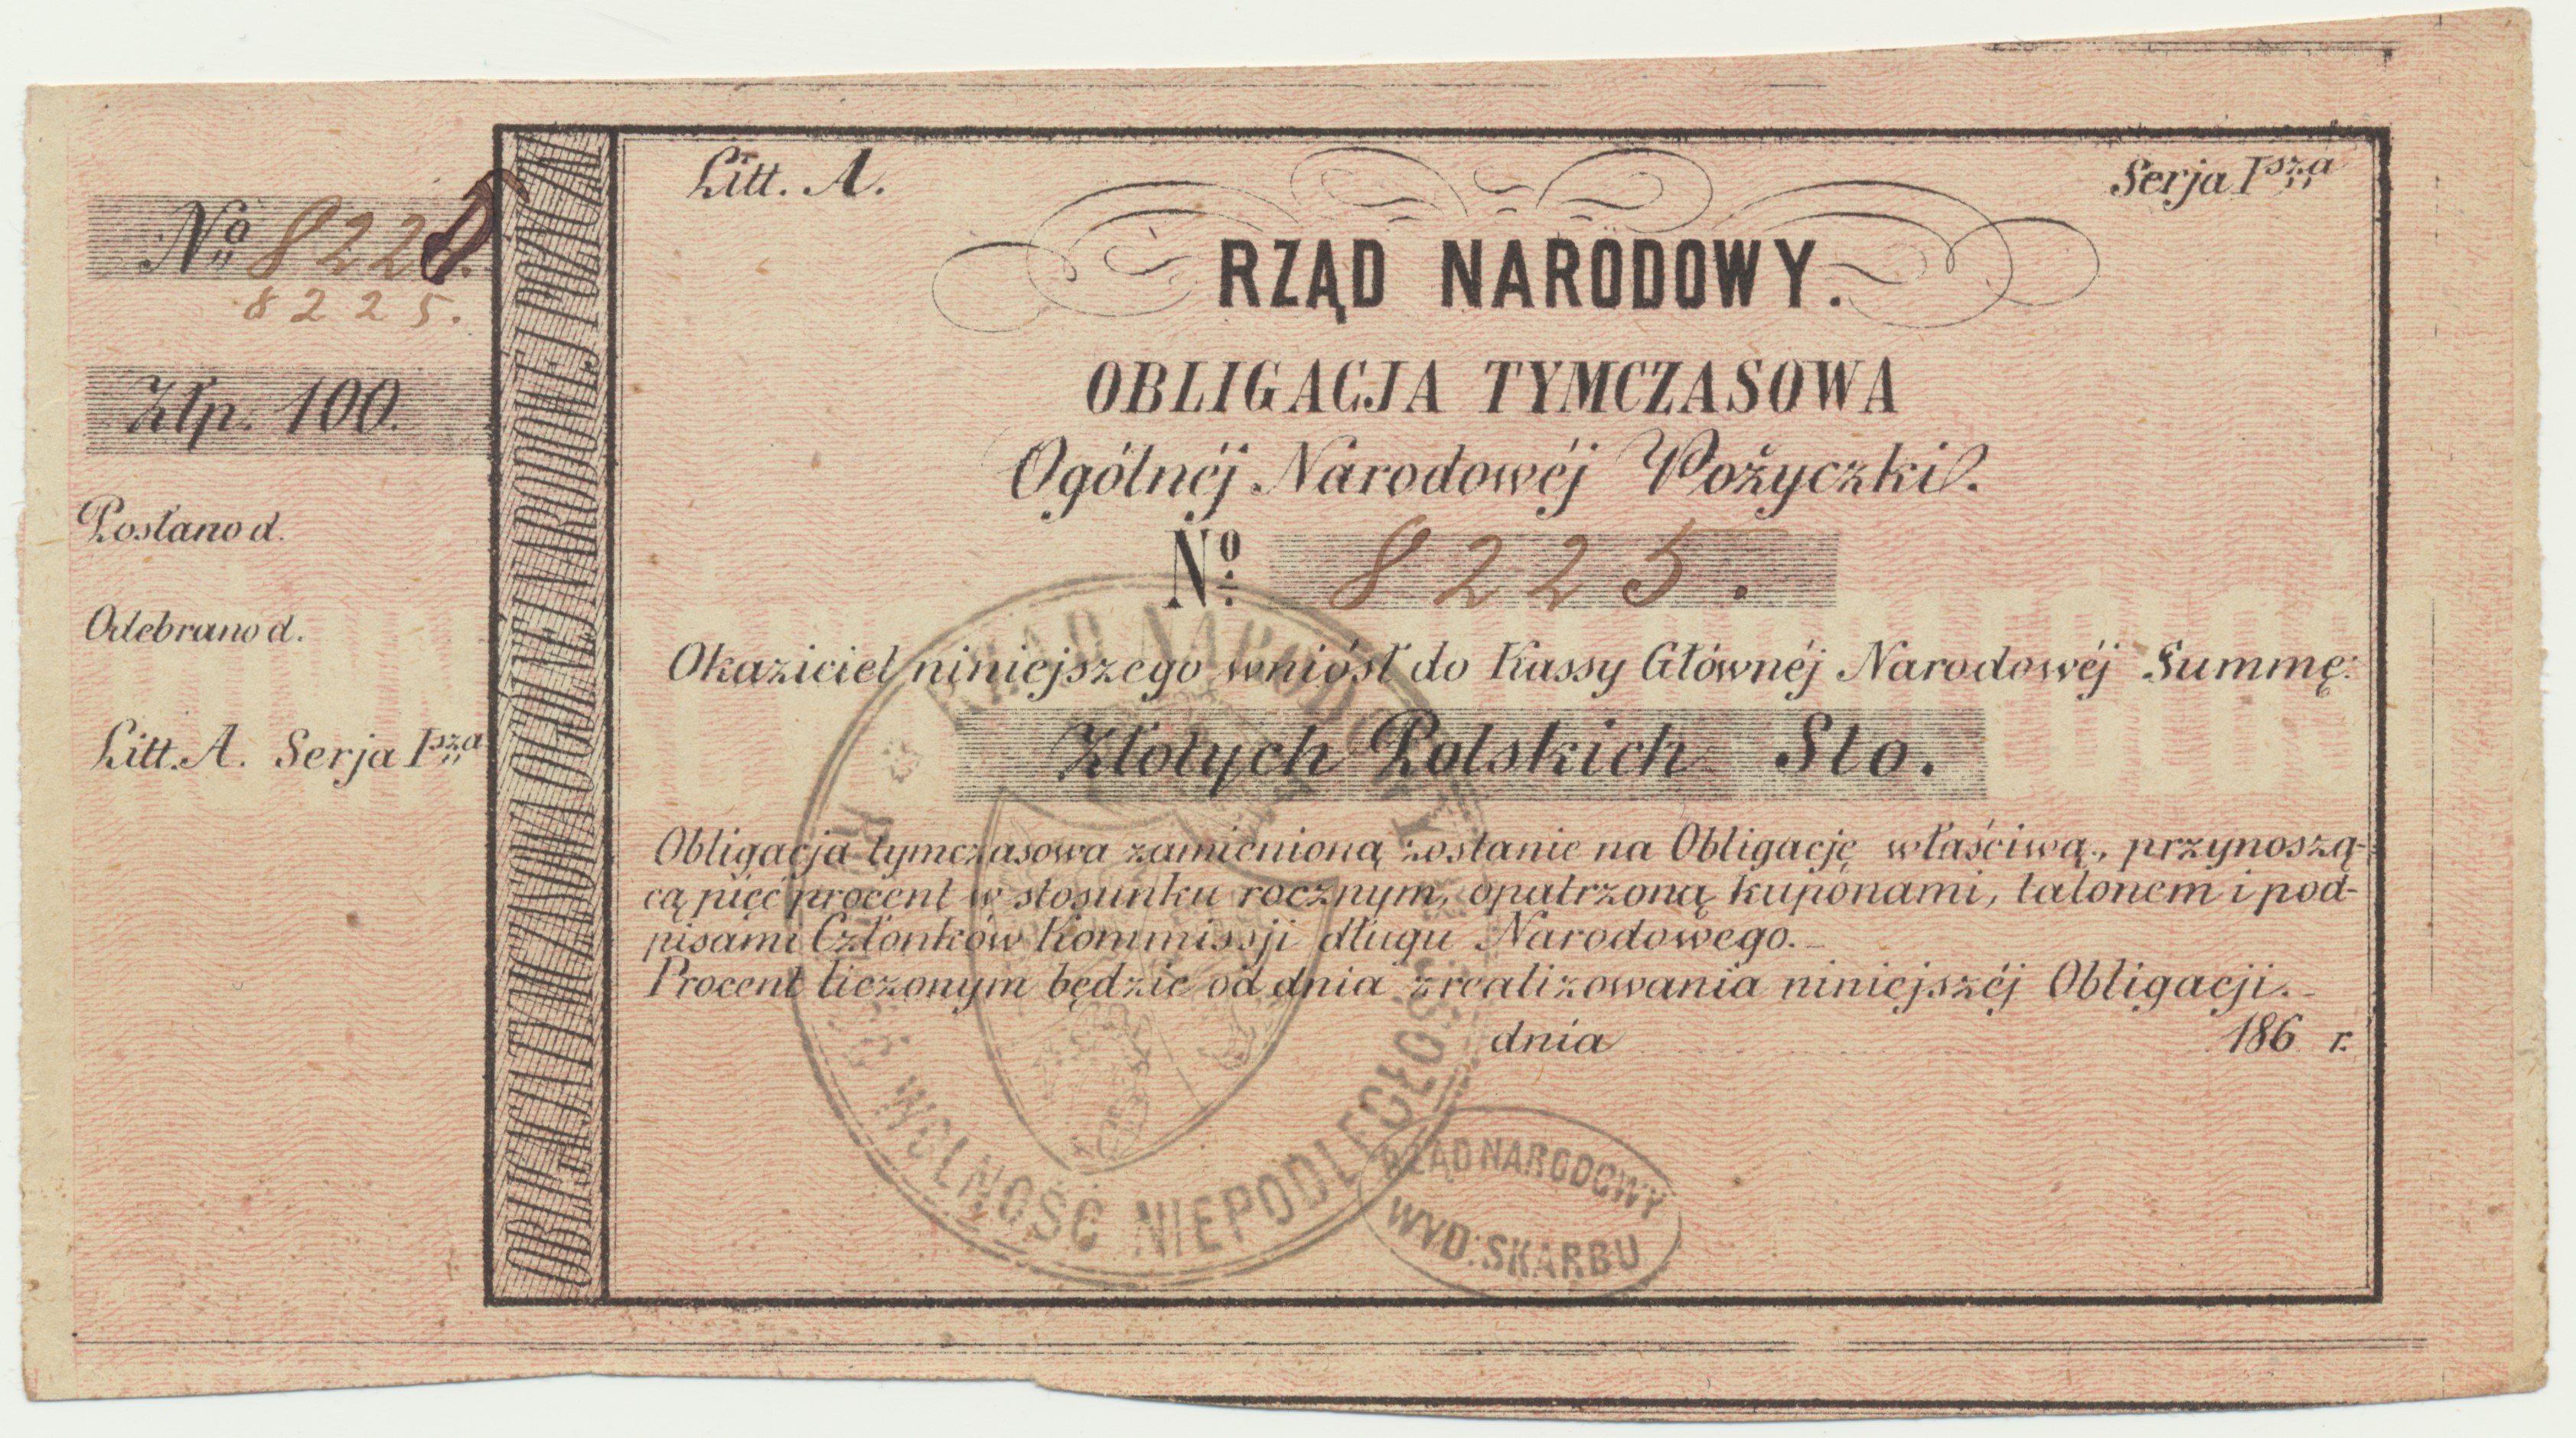 Litt. A.
Serja Isza
RZĄD NARODOWY.
OBLIGACJA TYMCZASOWA
Ogólnéj Narodowéj Pożyczki.
No 8225.
Okaziciel niniejszego wniósł do Kassy Głównéj Narodowéj Summę:
Złotych Polskich Sto.
Obligacja tymczasowa zamienioną zostanie na Obligację właściwą, przynoszą-
cą pięć procent w stosunku rocznym, opatrzoną kuponami, talonem i pod-
pisami Członków Kommissji długu Narodowego.
Procent liczonym będzie od dnia zrealizowania niniejszéj Obligacji.
dnia 186 r.
No 822
8225.
Złp. 100.
Posłano d.
Odebrano d.
Litt. A. Serja Isza
OBLIGACJA TYMCZASOWA OGÓLNÉJ NARODOWÉJ POŻYCZKI
RZĄD NARODOWY
RÓWNOŚĆ WOLNOŚĆ NIEPODLEGŁOŚĆ
RZĄD NARODOWY
WYD: SKARBU